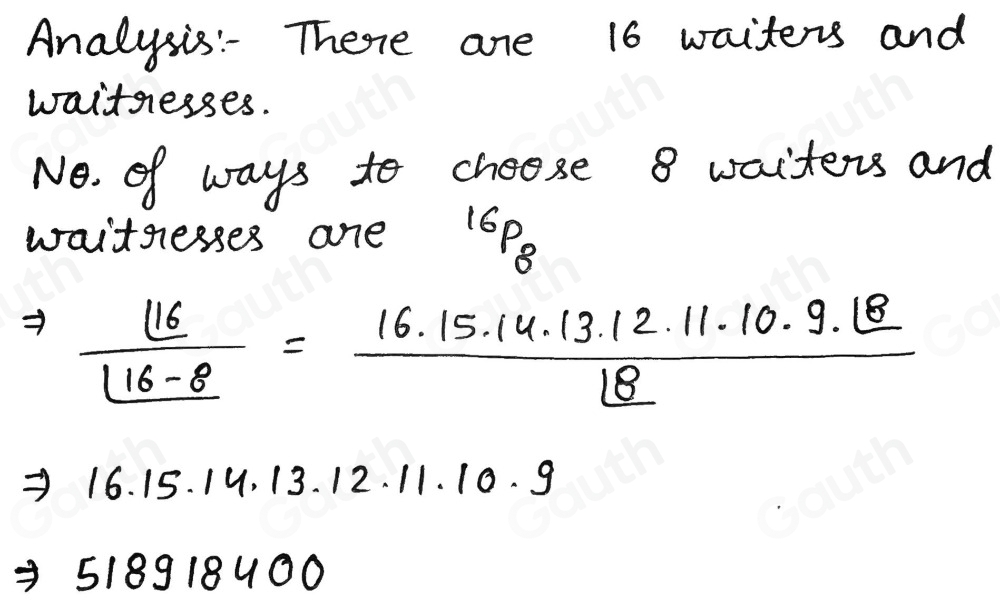 Analysis:- There are 16 waiters and
waitresses.
No. of ways to choose 8 waiters and
waitresses are ¹⁶P₈
⇒ |16 / |16-8 = 16.15.14.13.12.11.10.9.|8 / |8
⇒ 16.15.14.13.12.11.10.9
⇒ 518918400